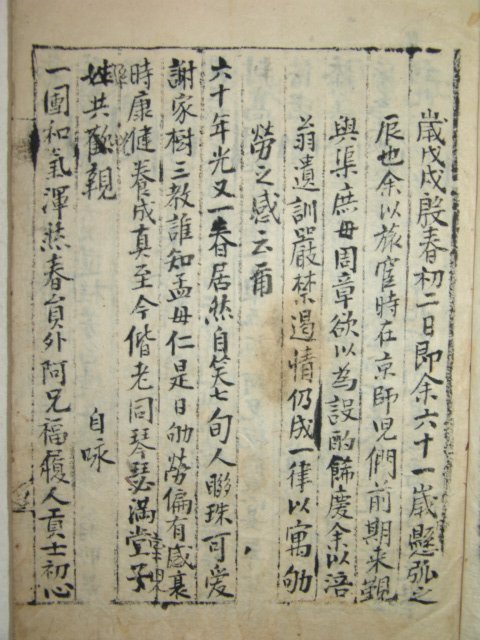 歲戊戌殷春初二日即余六十一歲懸弧之
辰也余以旅宦時在京師児們前期来覲
與渠庶母周章欲以為設酌餙慶余以浯
翁遺訓嚴禁遏情仍成一律以寓劬
勞之感云爾
六十年光又一春居然自笑七旬人聯珠可爱
謝家樹三教誰知孟母仁是日劬勞偏有感襄
時康健養成真至今偕老同琴瑟滿堂子
姓共歡親
自咏
一團和氣渾然春負外阿兄福履人貢士初心